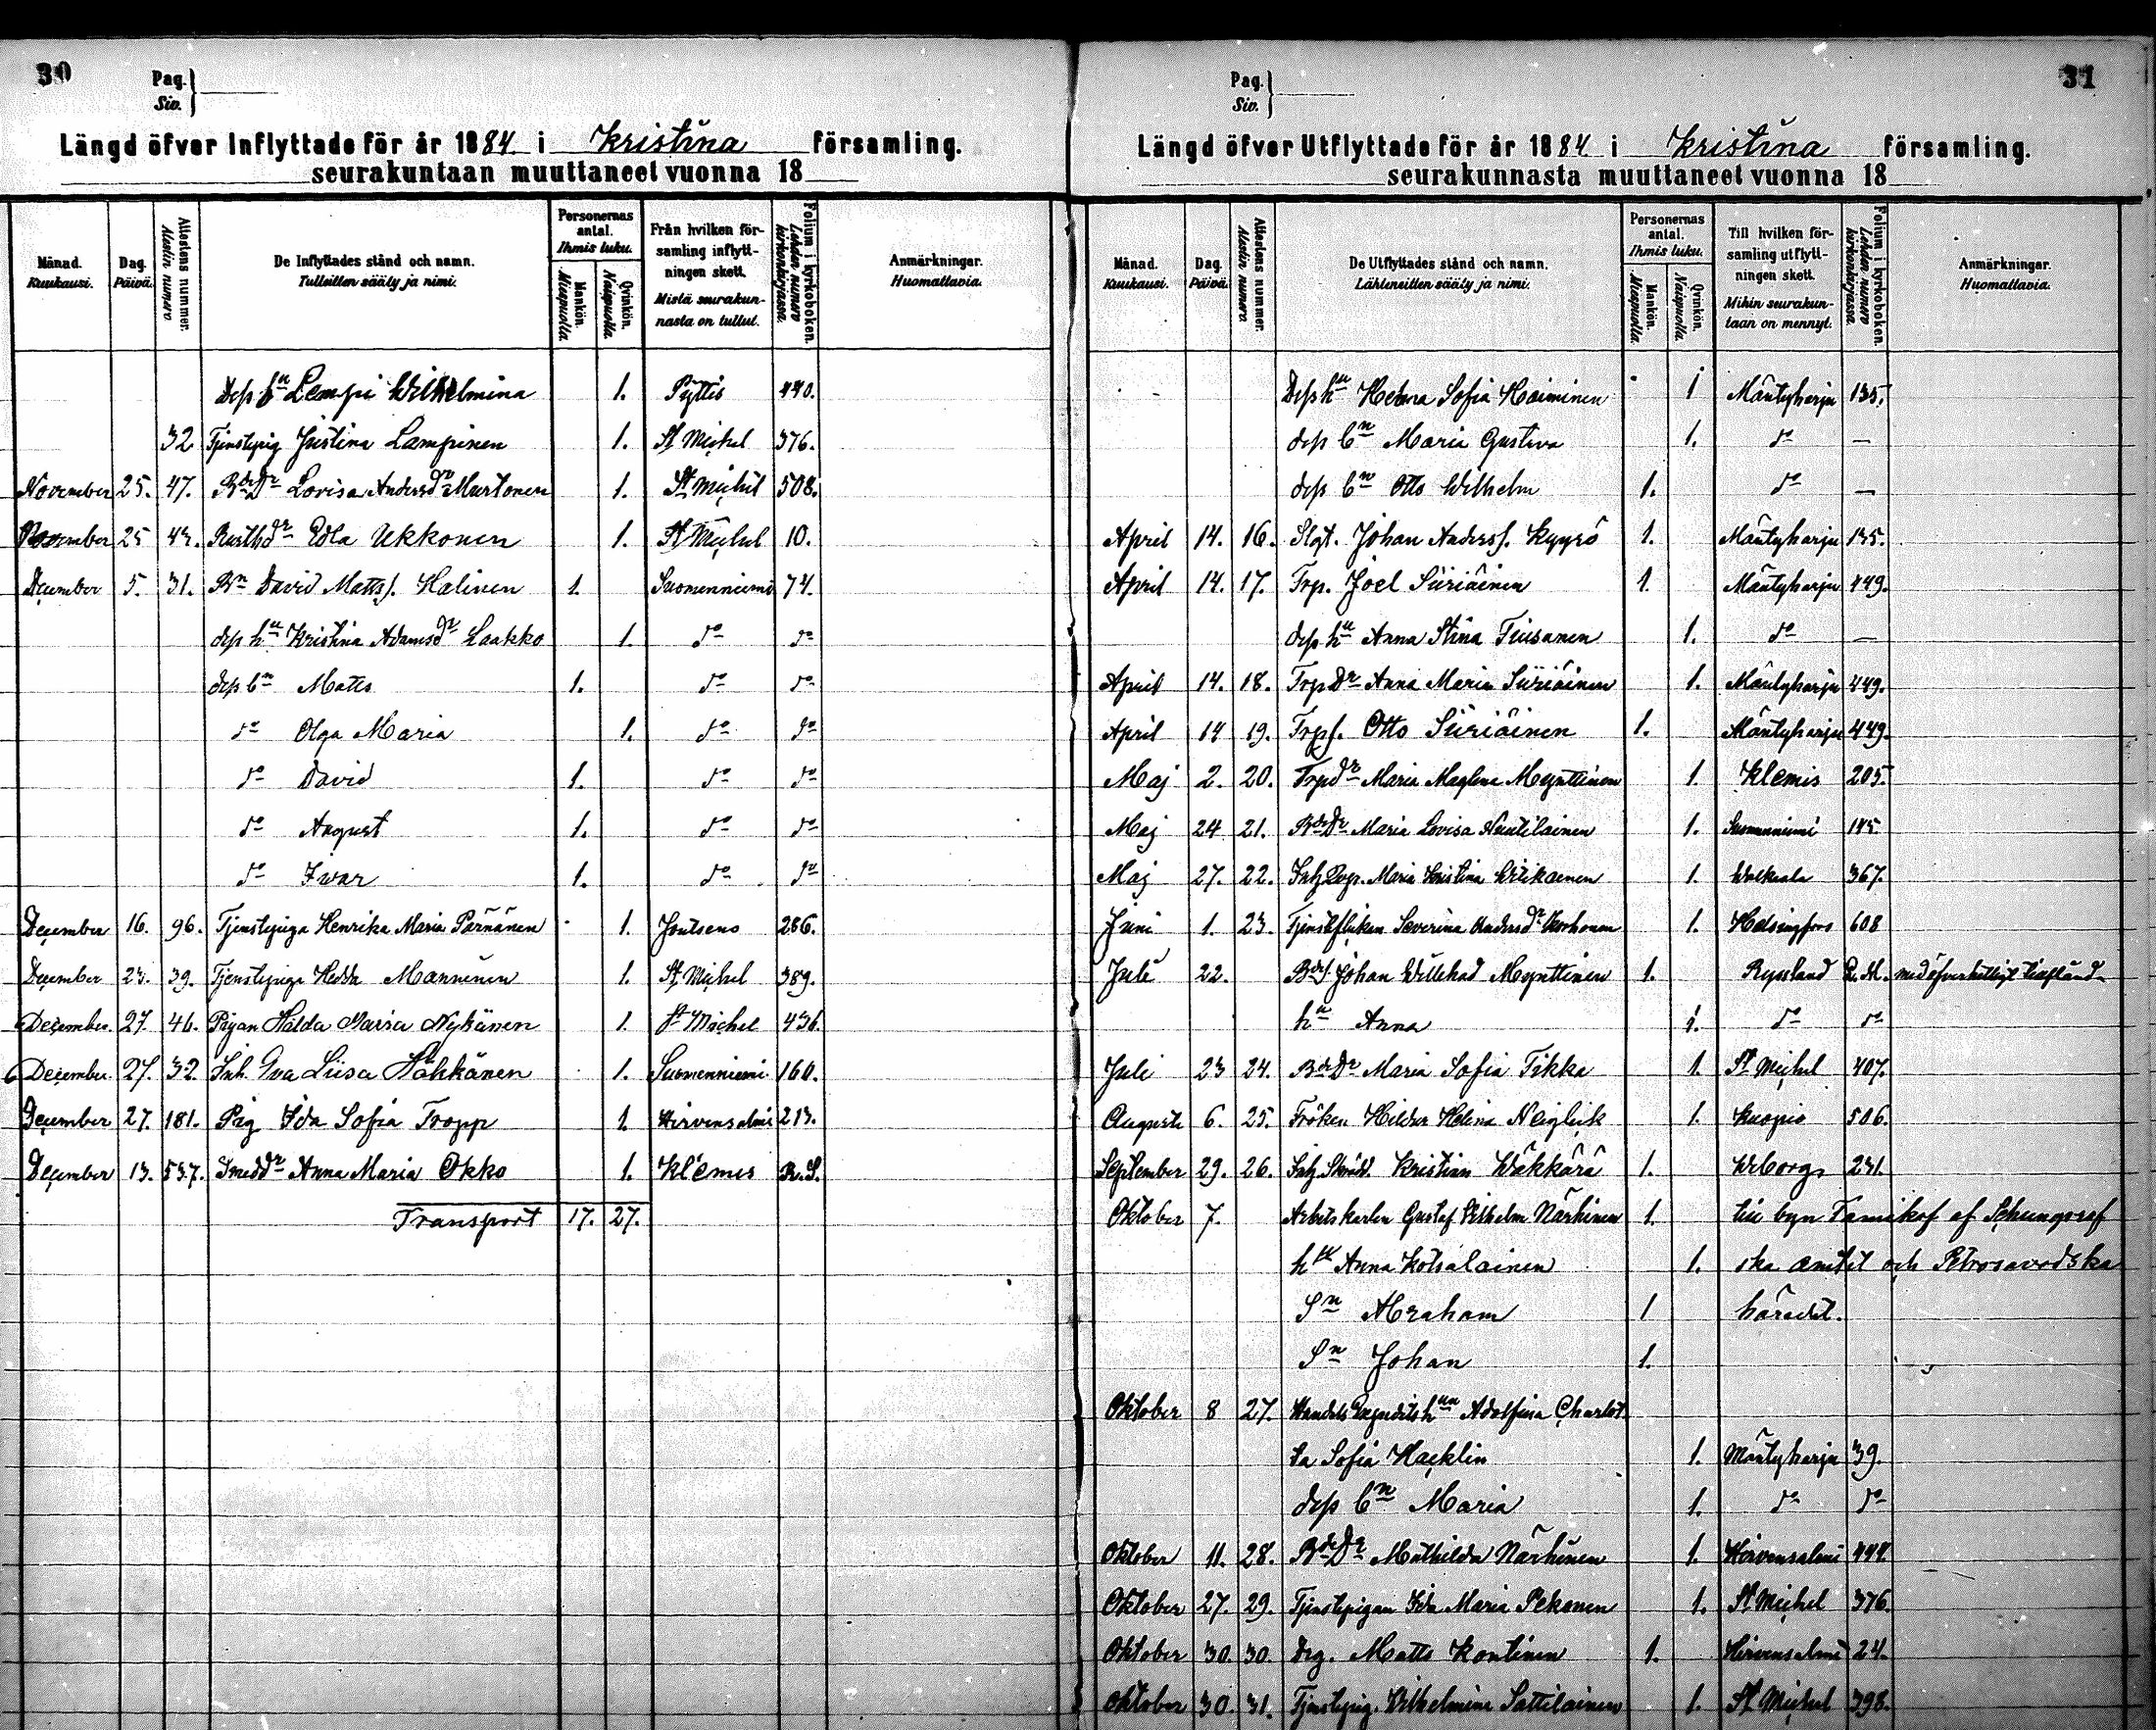 30
Pag.
Siv.
Längd öfver Inflyttade för år 1884 i Kristina församling.
seurakuntaan muuttaneet vuonna 18
Månad. Kuukausi.
Dag. Päivä.
Attestens nummer. Alestin numero
De Inflyttades stånd och namn. Tulleitten sääty ja nimi.
Personernas antal. Ihmis luku.
Mankön. Miespuolia.
Qvinkön. Naispuolia.
Från hvilken församling inflyttningen skett.
Mistä seurakunnasta on tullut.
Folium i kyrkoboken. Lehden numero kirkonkirjassa.
Anmärkningar. Huomattavia.
dess bn Lempi Wilhelmina 1. Pyttis 440.
32 Tjenstepig Justina Lampinen 1. St Michel 376.
November 25. 47. BdeDr Lovisa Andersdr Murtonen 1. St Michel 508.
November 25 43. Rusthdr Edla Ukkonen 1. St Michel 10.
December 5. 31. Bn David Mattss. Halinen 1. Suomenniemi 74.
dess hu Kristina Adamsdr Laakko 1. do do
dess bn Matts 1. do do
do Olga Maria 1. do do
do David 1. do do
do August 1. do do
do Ivar 1. do do
December 16. 96. Tjenstepiga Henrika Maria Pärnänen 1. Joutseno 286.
December 23. 39. Tjenstepiga Hedda Manninen 1. St Michel 389.
December. 27. 46. Pigan Halda Maria Nykänen 1. St Michel 436.
December. 27. 32. Inh. Eva Liisa Hähkänen 1. Suomenniemi 160.
December 27. 181. Pig Ida Sofia Tropp 1. Hirvensalmi 213.
December 13. 537. Smeddr Anna Maria Okko 1. Klemis R.S.
Transport 17. 27.
31
Pag.
Siv.
Längd öfver Utflyttade för år 1884 i Kristina församling.
seurakunnasta muuttaneet vuonna 18
Månad. Kuukausi.
Dag. Päivä.
Attestens nummer. Alestin numero
De Utflyttades stånd och namn. Lähteneitten sääty ja nimi.
Personernas antal. Ihmis luku.
Mankön. Miespuolia.
Qvinkön. Naispuolia.
Till hvilken församling utflyttningen skett.
Mihin seurakuntaan on mennyt.
Folium i kyrkoboken. Lehden numero kirkonkirjassa.
Anmärkningar. Huomattavia.
Dess hu Helena Sofia Haiminen 1 Mäntyharju 135.
dess bn Maria Gustava 1. do —
dess bn Otto Wilhelm 1. do —
April 14. 16. Slgt. Johan Anderss. Kyyrö 1. Mäntyharju 135.
April 14. 17. Trp. Joel Siiriäinen 1. Mäntyharju 449.
dess hu Anna Stina Tiusanen 1. do —
April 14. 18. TrpDr Anna Maria Siiriäinen 1. Mäntyharju 449.
April 14 19. Trps. Otto Siiriäinen 1. Mäntyharju 449.
Maj 2. 20. Trpdr Maria Magdena Mynttinen 1. Klemis 205.
Maj 24 21. BdeDr Maria Lovisa Nuutilainen 1. Suomeniemi 145.
Maj 27. 22. Maria Kristina Witikainen 1. Walkeala 367.
Juni 1. 23. Tjensteflickan Severina Andersdr Korhonen 1. Helsingfors 608
Juli 22. Bdes. Johan Willehad Mynttinen 1. Ryssland med öfverhettligt tillstånd
hu Anna 1. do do
Juli 23 24. BdeDr Maria Sofia Tikka 1. St Michel 407.
Augusti 6. 25. Fröken Hildur Helena Neiglick 1. Kuopio 506.
September 29. 26. Inh Skräd. Kristian Wäkkärä 1. Wiborgs 231.
Oktober 7. Arbetskarlen Gustaf Wilhelm Närhinen 1. till byn Tamikof af Schungoref
hu Anna Kotsalainen 1. ska amtet och Petrosavodska
Sn Abraham 1 häradet.
Sn Johan 1.
Oktober 8 27. Handels Expedits hun Adolfina Charlot
ta Sofia Hacklin 1. Mäntyharju 39.
dess bn Maria 1. do do
Oktober 11. 28. BdeDr Mathilda Närhinen 1. Hirvensalmi 444.
Oktober 27. 29. Tjenstepigan Ida Maria Pekonen 1. St Michel 376.
Oktober 30. 30. Drg. Matts Kontinen 1. Hirvensalmi 24.
Oktober 30. 31. Tjenstepig. Wilhelmina Sattilainen 1. St Michel 398.